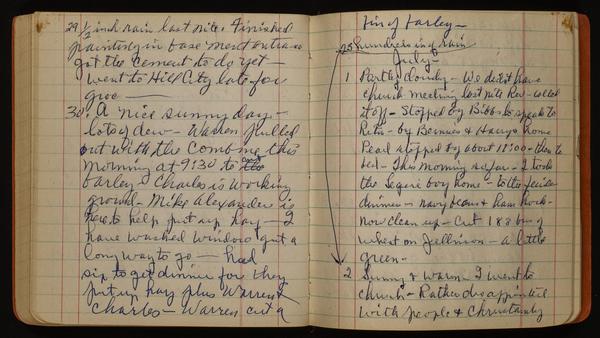 29 1/2 inch rain last nite. Finished
painting in basement entrance
got the cement to do yet -
went to Hill City late for
groc -
30. A nice sunny day -
lots of dew - Warren pulled
out with the combine this
morning at 9:30 to the
barley - Charles is working
ground - Mike Alexander is
here to help put up hay - I
have washed windows got a
long way to go - had
to get dinner for they
put up hay plus Warren &
Charles - Warren cut a
bin of barley -
25 hundreds in of rain
July -
1 Partly cloudy - We didn't have
church meeting last nite Rev - called
it off - Stopped by Bibbs to speak to
- by Bernices & Harrys home
Pearl stopped by about 11:00 - then to
bed - This morning so far - I took
the boy home - to the
dinner - navy beans & ham hock -
Now clean up - Cut 188 bu of
wheat on - a little
green -
2 Sunny & warm - I went to
church - Rather disappointed
with people & Christianity